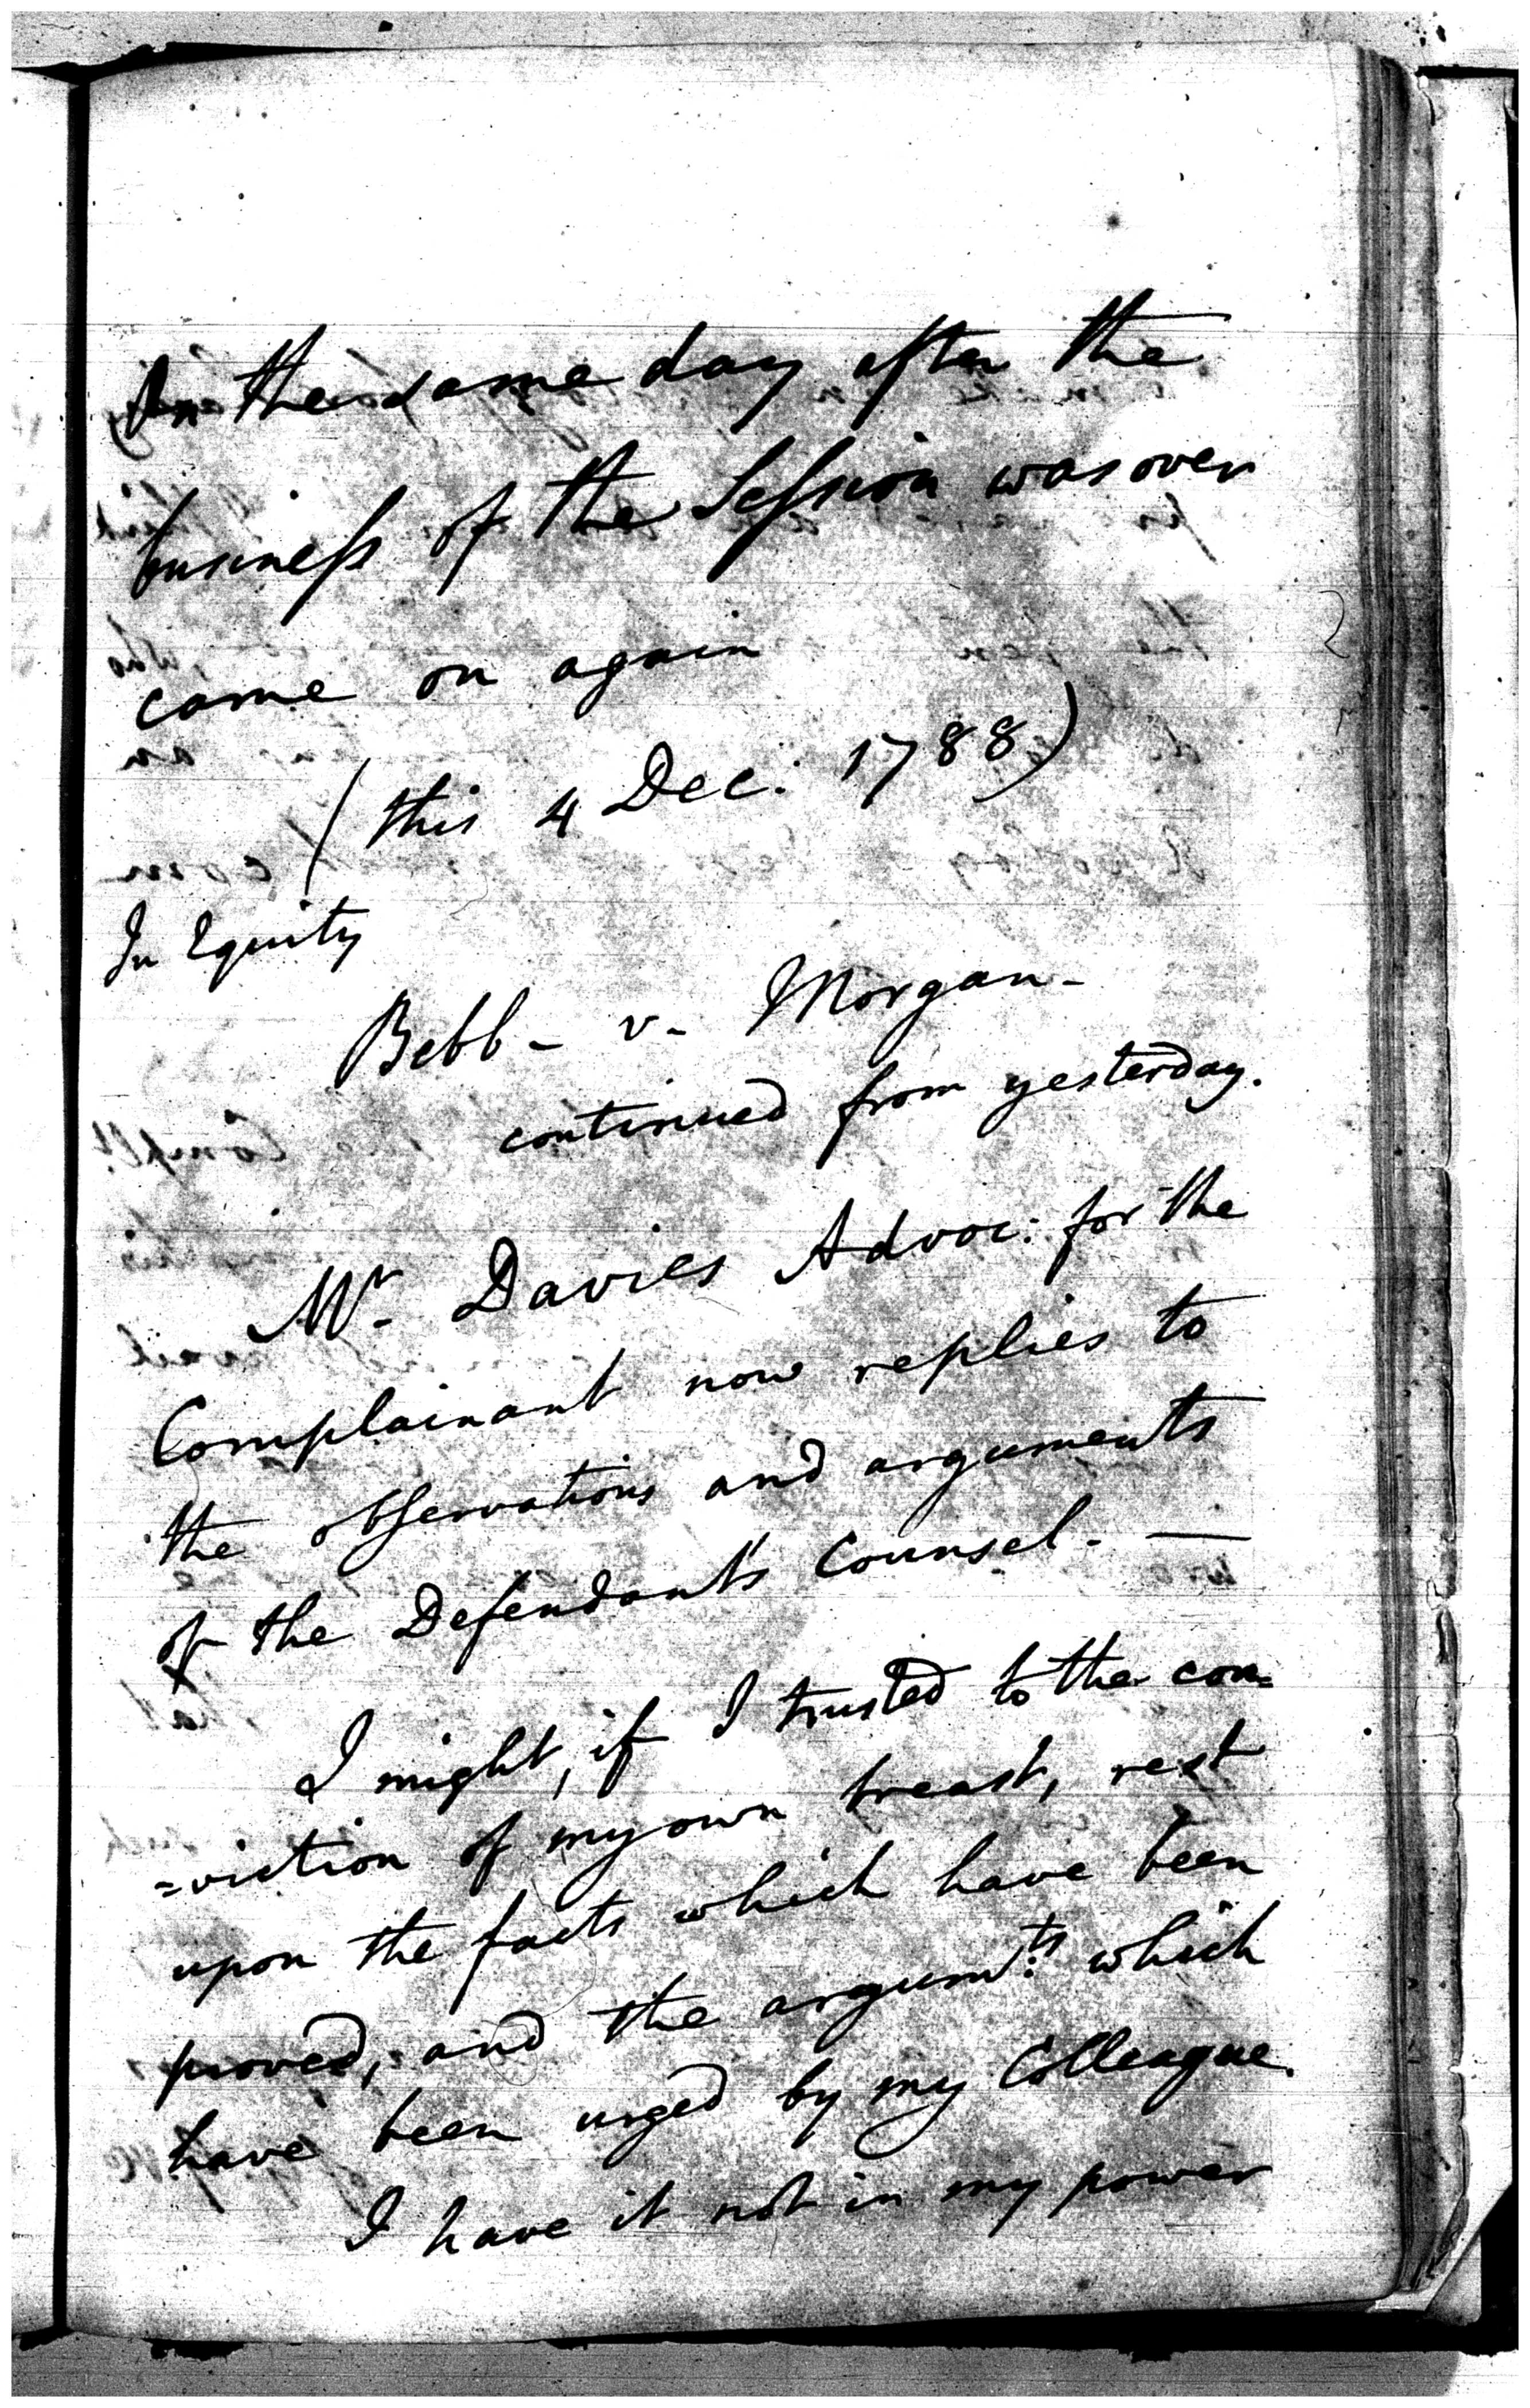 On the same day after the
business of the Session was over
came on again
(this 4 Dec: 1788)
In Equity
Bebb - v - Morgan -
continued from yesterday.
Mr. Davies Advoc: for the
Complainant now replies to
the observations and arguments
of the Defendant's Counsel. —
I might, if I trusted to the con=
=viction of my own breast, rest
upon the facts which have been
proved, and the argumts. which
have been urged by my Colleague.
I have it not in my power